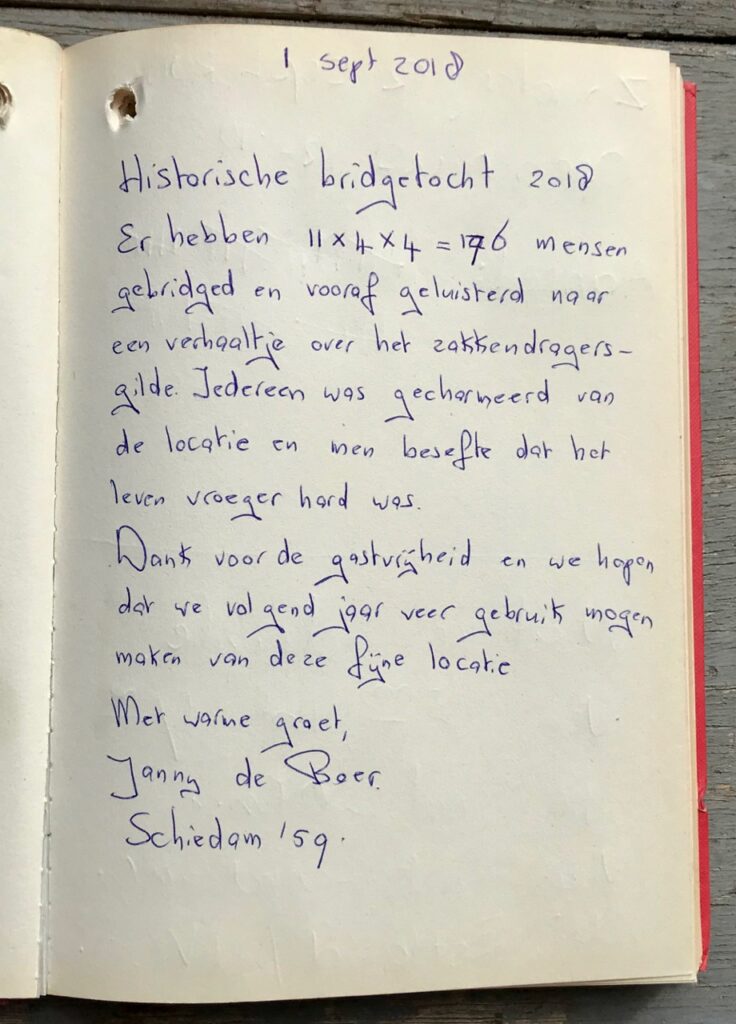 1 sept 2018
Historische bridgetocht 2018
Er hebben 11 x 4 x 4 = 176 mensen
gebridged en vooraf geluisterd naar
een verhaaltje over het zakkendragers-
gilde. Iedereen was gecharmeerd van
de locatie en men besefte dat het
leven vroeger hard was.
Dank voor de gastvrijheid en we hopen
dat we volgend jaar veer gebruik mogen
maken van deze fijne locatie
Met warme groet,
Janny de Boer.
Schiedam '59.